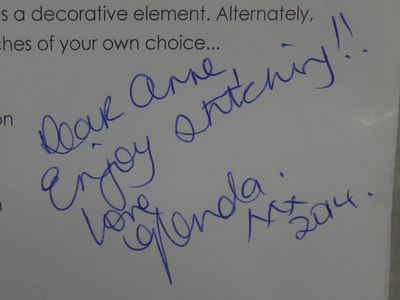 s a decorative element. Alternately,
ches of your own choice...
on
Dear Anne,
Enjoy stitching!!
Love
Glenda.
xxx
2014.